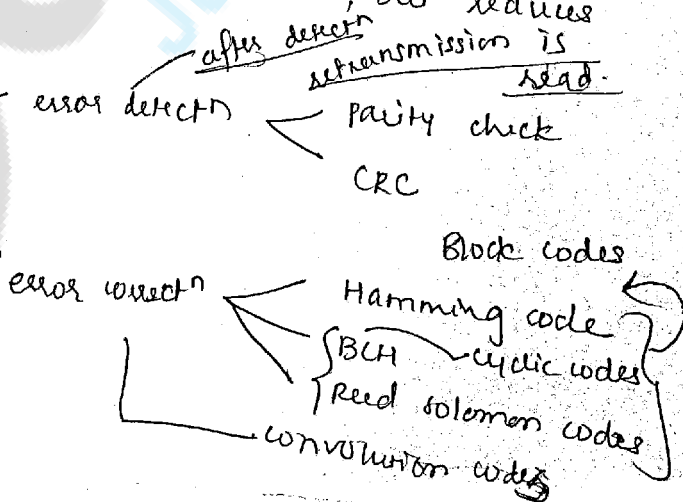 reduces
after detectn
retransmission is
read.
error detectn
Parity check
CRC
Block codes
error correctn
Hamming code
BCH
cyclic codes
Reed solomon codes
convolution codes